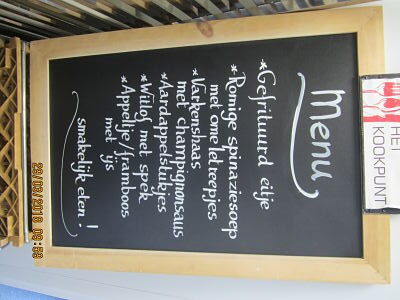 Menu
*Gefrituurd eitje
*Romige spinaziesoep
met omeletreepjes
*Varkenshaas
met champignonsaus
*Aardappelstukjes
*Witlof met spek
*Appeltje/framboos
met ijs
smakelijk eten!
HET
KOOKPUNT